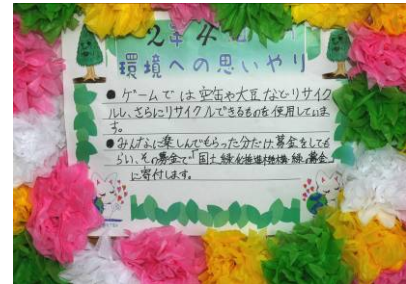 2年4
環境への思いやり
●ゲームでは空缶や大豆などリサイク
ルし、さらにリサイクルできるものを使用していま
す。
●みんなに楽しんでもらった分だけ募金をしても
らい、その募金で「国土緑化推進機構 緑の募金」
に寄付します。